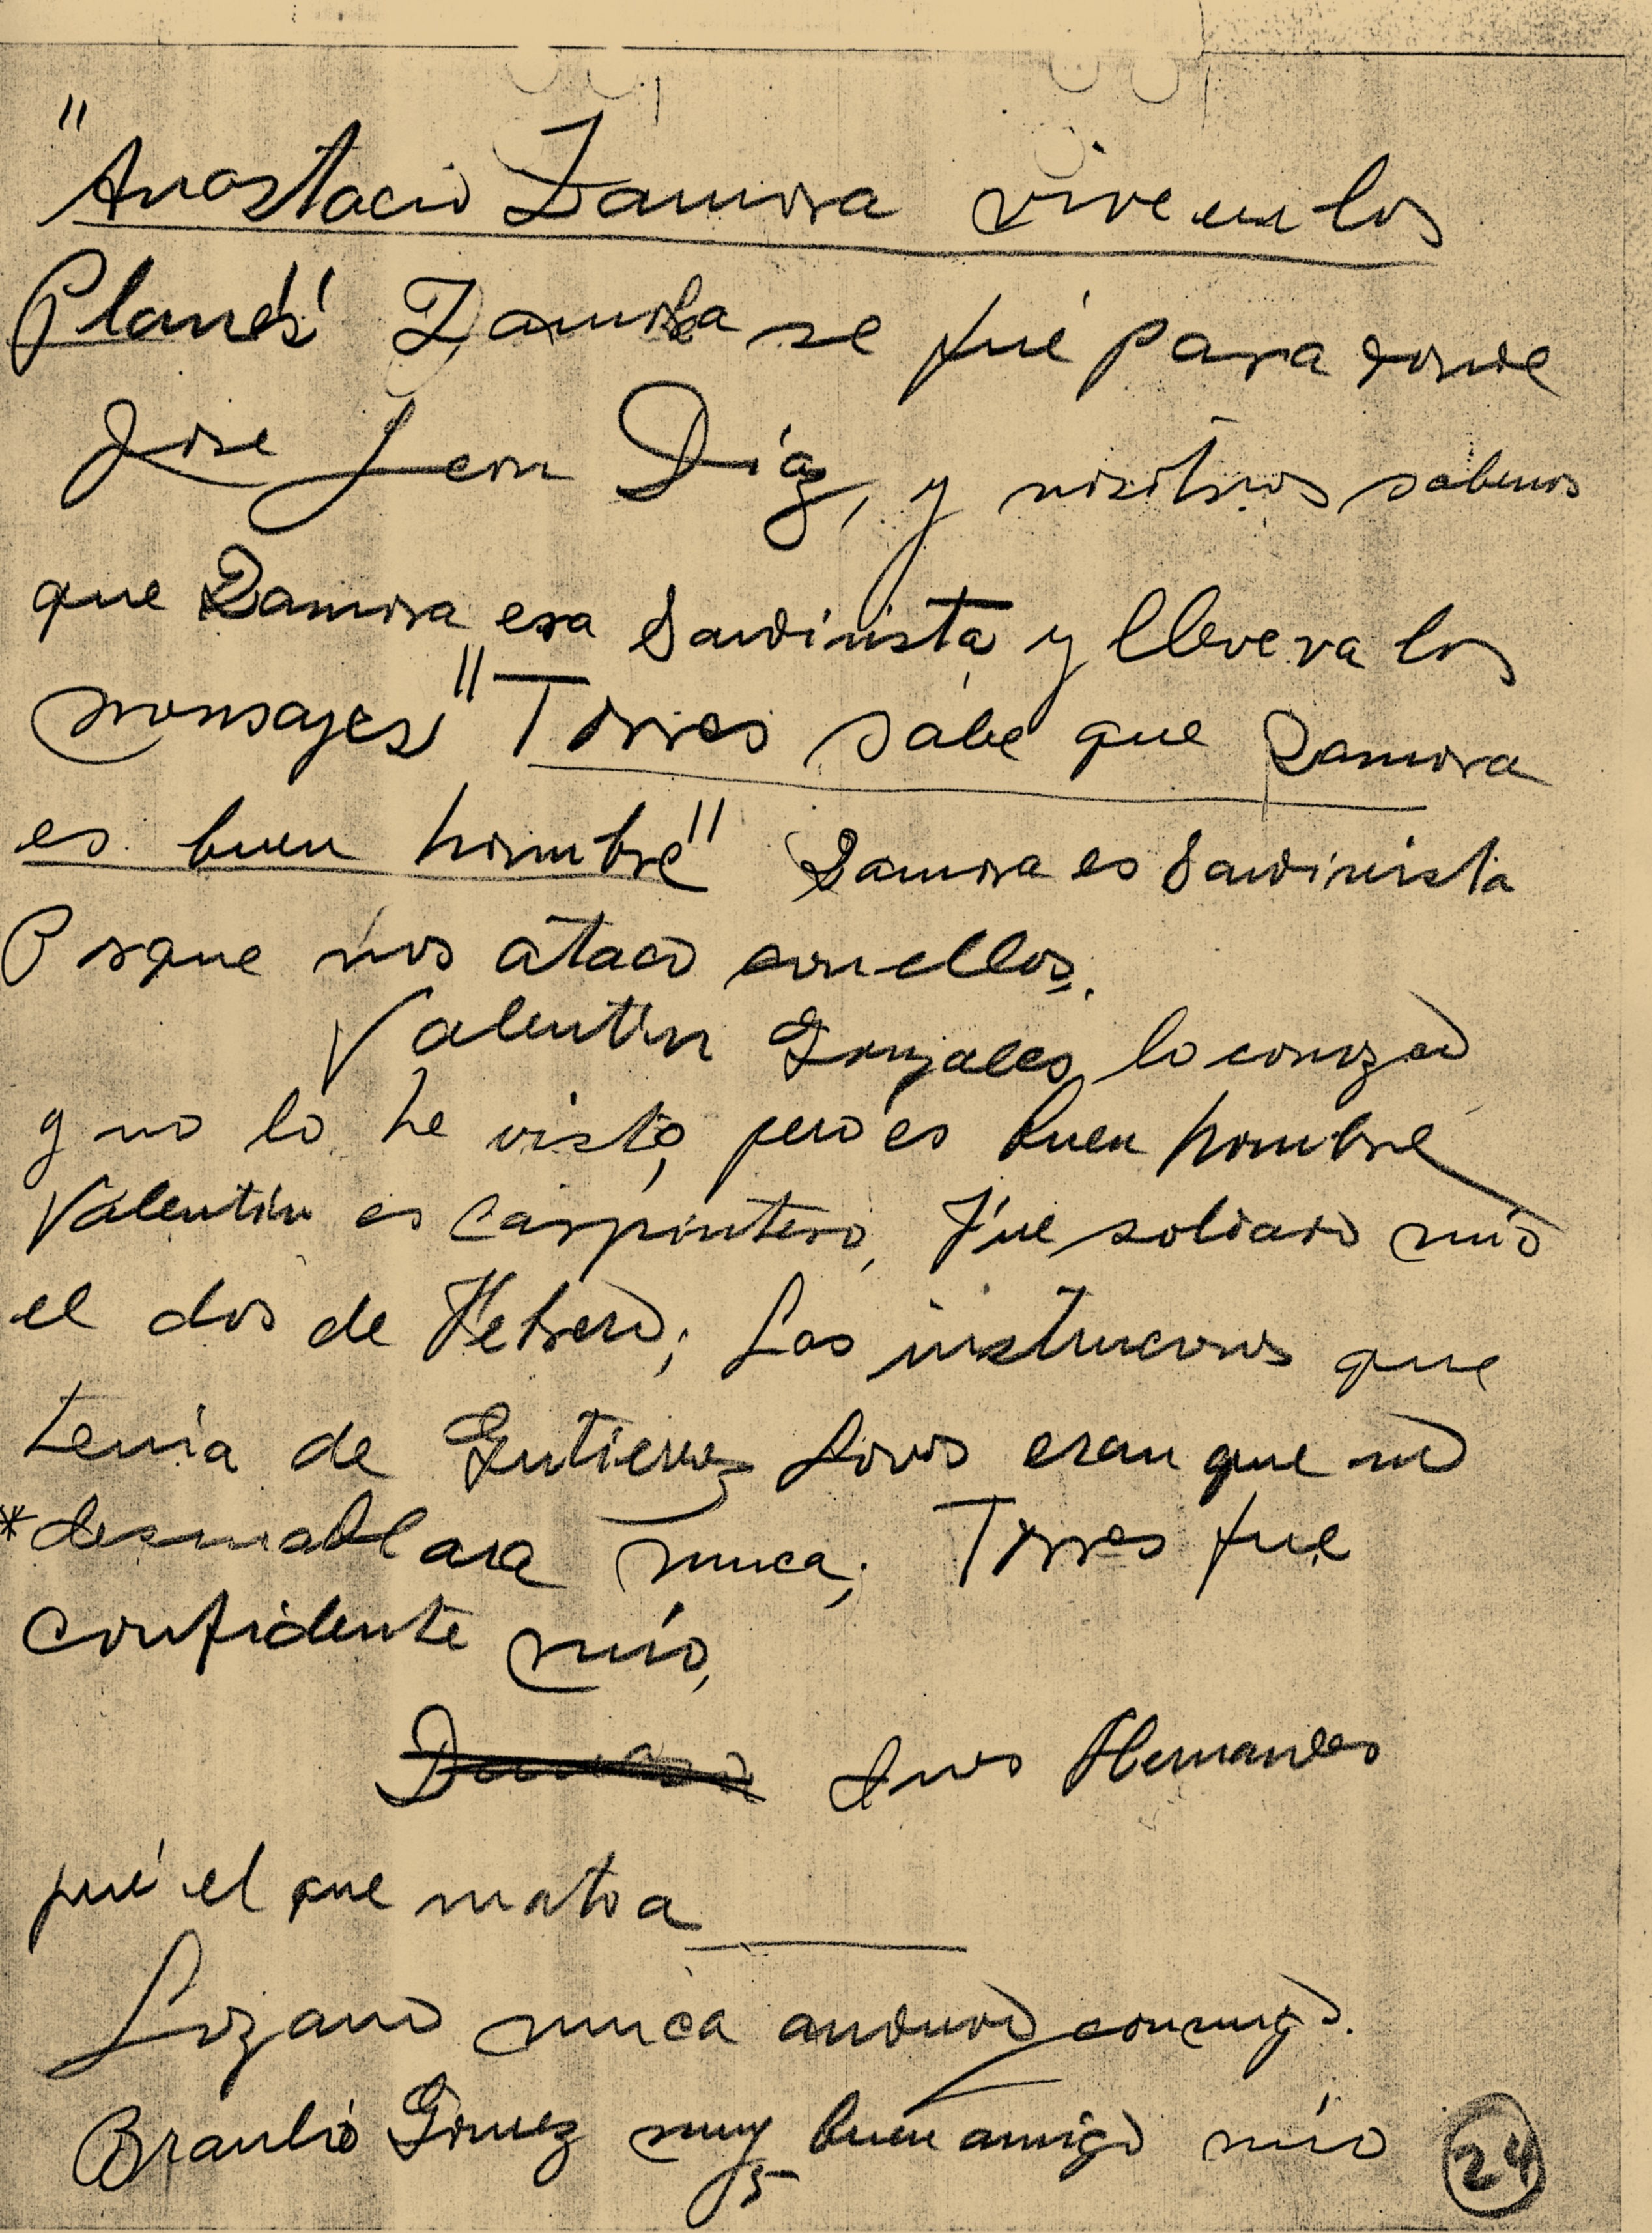 "Anastacio Zamora vive en los
Planes" Zamora se fué para donde
Jose Leon Díaz, y nosotros sabemos
que Zamora era Sandinista y lleveva los
mensajes" "Torres sabe que Zamora
es buen hombre" Zamora es Sandinista
Porque nos ataco con ellos.
Valentin Gonzales, lo conozco
y no lo he visto, pero es buen hombre
Valentín es Carpintero, Fue soldado mío
el dos de Febrero; Las instrucions que
tenia de Gutierrez eran que no
* nunca; Torres fue
confidente mío,
Ines Hernandes
fué el que mato a
Lozano nunca anduvo conmigo.
Braulio Gomez muy buen amigo mío
5
24